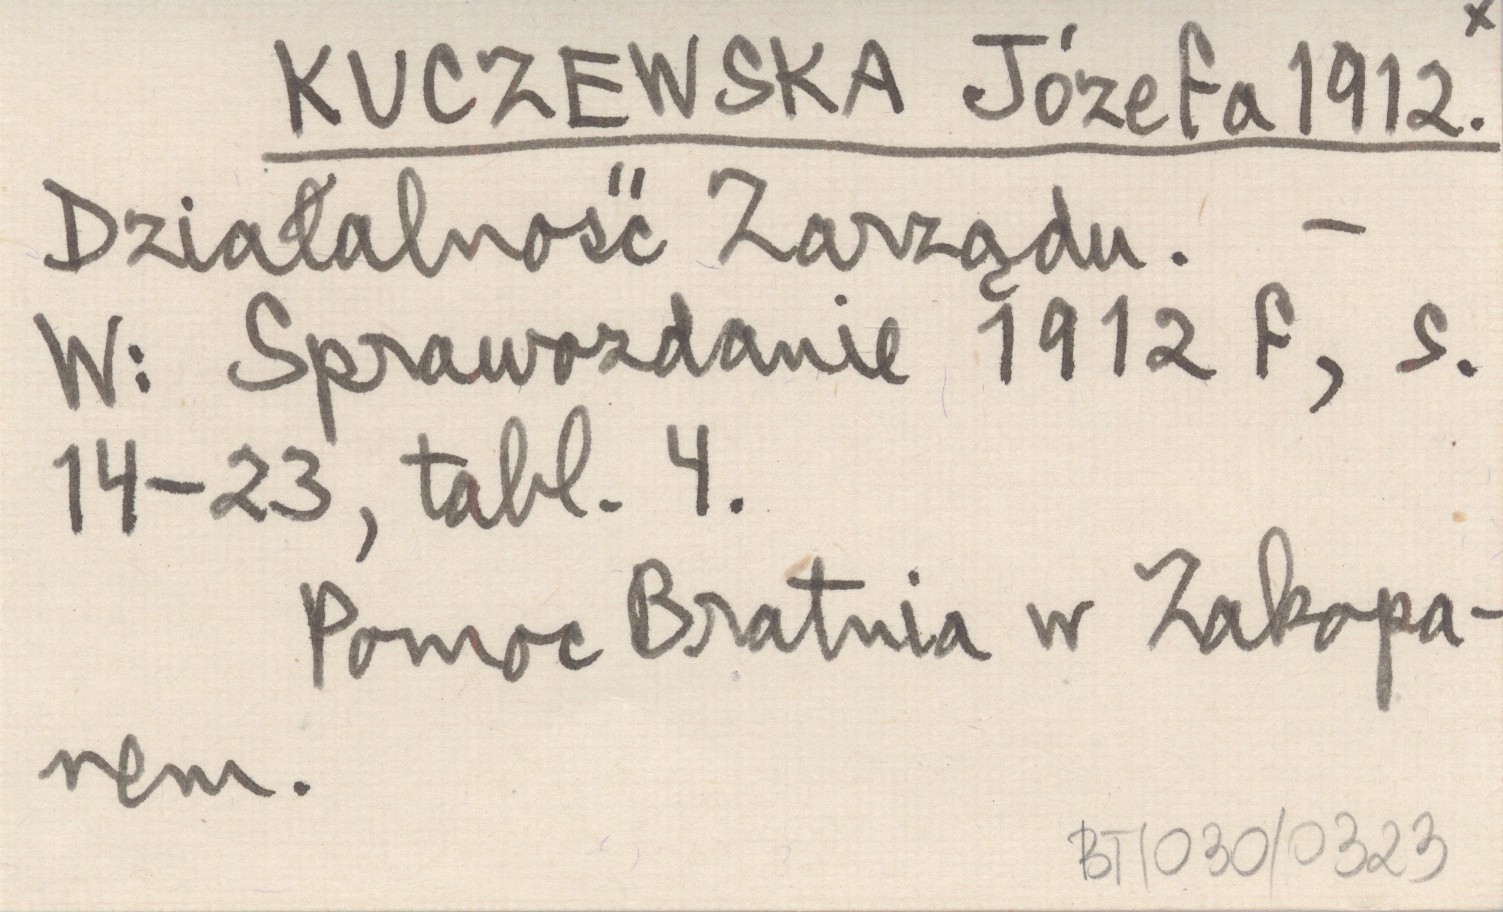 x
KUCZEWSKA Józefa 1912.
Działalność Zarządu. –
W: Sprawozdanie 1912 f, s.
14–23, tabl. 4.
Pomoc Bratnia w Zakopa-
nem.
BT/030/0323